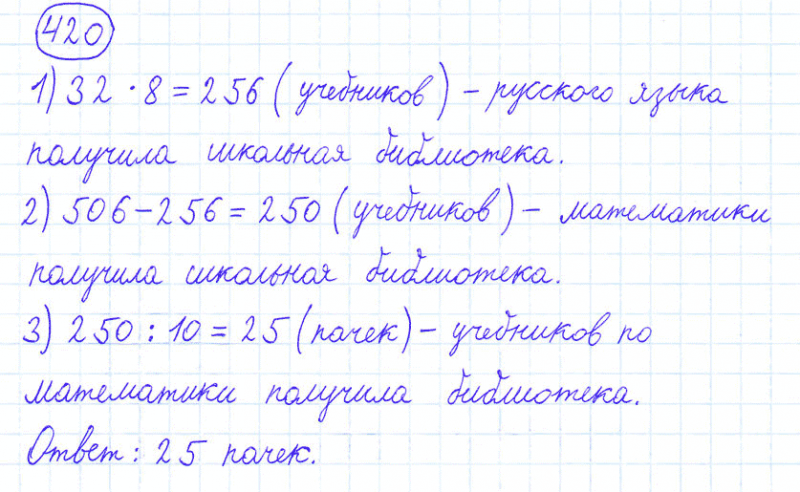 420
1) 32 · 8 = 256 ( учебников ) – русского языка
получила школьная библиотека.
2) 506 – 256 = 250 ( учебников ) – математики
получила школьная библиотека.
3) 250 : 10 = 25 (пачек) – учебников по
математики получила библиотека.
Ответ : 25 пачек.